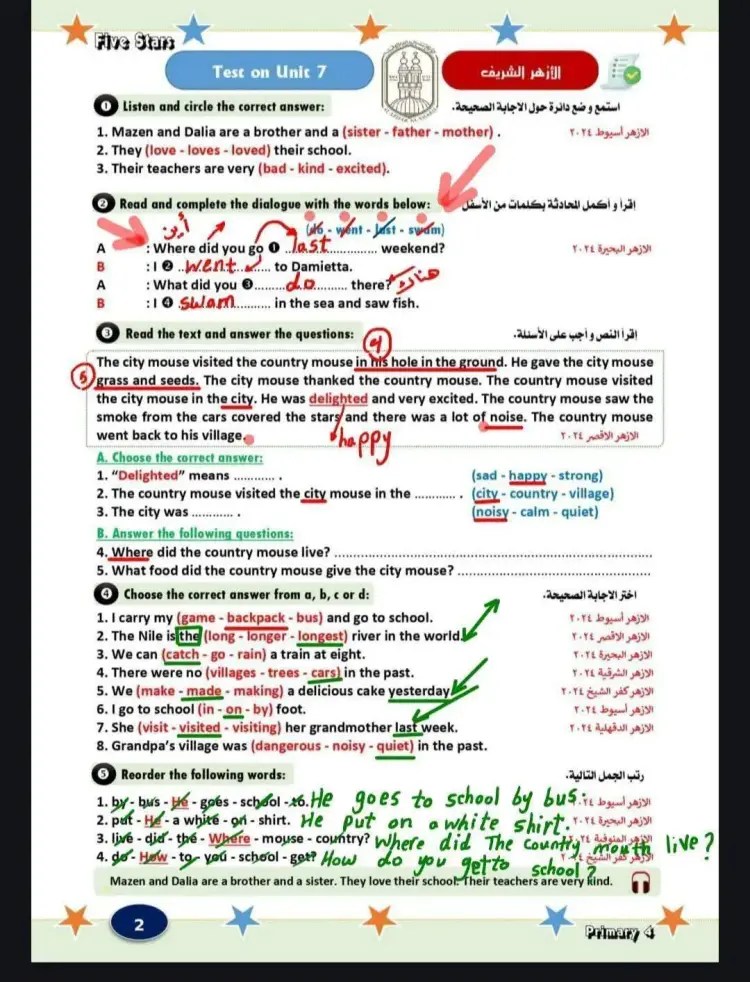 Five Stars
Test on Unit 7
الأزهر الشريف
1 Listen and circle the correct answer: استمع و ضع دائرة حول الاجابة الصحيحة.
1. Mazen and Dalia are a brother and a (sister - father - mother) . الازهر أسيوط ٢٠٢٤
2. They (love - loves - loved) their school.
3. Their teachers are very (bad - kind - excited).
2 Read and complete the dialogue with the words below: اقرأ و أكمل المحادثة بكلمات من الأسفل
أين
(do - went - last - swam)
A : Where did you go 1 ..last.. weekend? الازهر البحيرة ٢٠٢٤
B : I 2 ..went.. to Damietta.
A : What did you 3 ....do.... there? هناك
B : I 4 swam.... in the sea and saw fish.
3 Read the text and answer the questions: اقرأ النص و أجب على الأسئلة.
4
The city mouse visited the country mouse in his hole in the ground. He gave the city mouse
5 grass and seeds. The city mouse thanked the country mouse. The country mouse visited
the city mouse in the city. He was delighted and very excited. The country mouse saw the
smoke from the cars covered the stars and there was a lot of noise. The country mouse
went back to his village. happy الازهر الاقصر ٢٠٢٤
A. Choose the correct answer:
1. “Delighted” means ............ . (sad - happy - strong)
2. The country mouse visited the city mouse in the ............ . (city - country - village)
3. The city was ............ . (noisy - calm - quiet)
B. Answer the following questions:
4. Where did the country mouse live? ........................
5. What food did the country mouse give the city mouse? ........................
4 Choose the correct answer from a, b, c or d: اختر الاجابة الصحيحة.
1. I carry my (game - backpack - bus) and go to school. الازهر أسيوط ٢٠٢٤
2. The Nile is the (long - longer - longest) river in the world. الازهر الاقصر ٢٠٢٤
3. We can (catch - go - rain) a train at eight. الازهر البحيرة ٢٠٢٤
4. There were no (villages - trees - cars) in the past. الازهر الشرقية ٢٠٢٤
5. We (make - made - making) a delicious cake yesterday. الازهر كفر الشيخ ٢٠٢٤
6. I go to school (in - on - by) foot. الازهر أسيوط ٢٠٢٤
7. She (visit - visited - visiting) her grandmother last week. الازهر الدقهلية ٢٠٢٤
8. Grandpa’s village was (dangerous - noisy - quiet) in the past.
5 Reorder the following words: رتب الجمل التالية.
1. by - bus - He - goes - school - to. He goes to school by bus. الازهر أسيوط ٢٠٢٤
2. put - He - a white - on - shirt. He put on a white shirt. الازهر البحيرة ٢٠٢٤
3. live - did - the - Where - mouse - country? Where did The Country mouth live? الازهر المنوفية ٢٠٢٤
4. do - How - to - you - school - get? How do you get to school? الازهر كفر الشيخ ٢٠٢٤
Mazen and Dalia are a brother and a sister. They love their school. Their teachers are very kind.
2
Primary 4